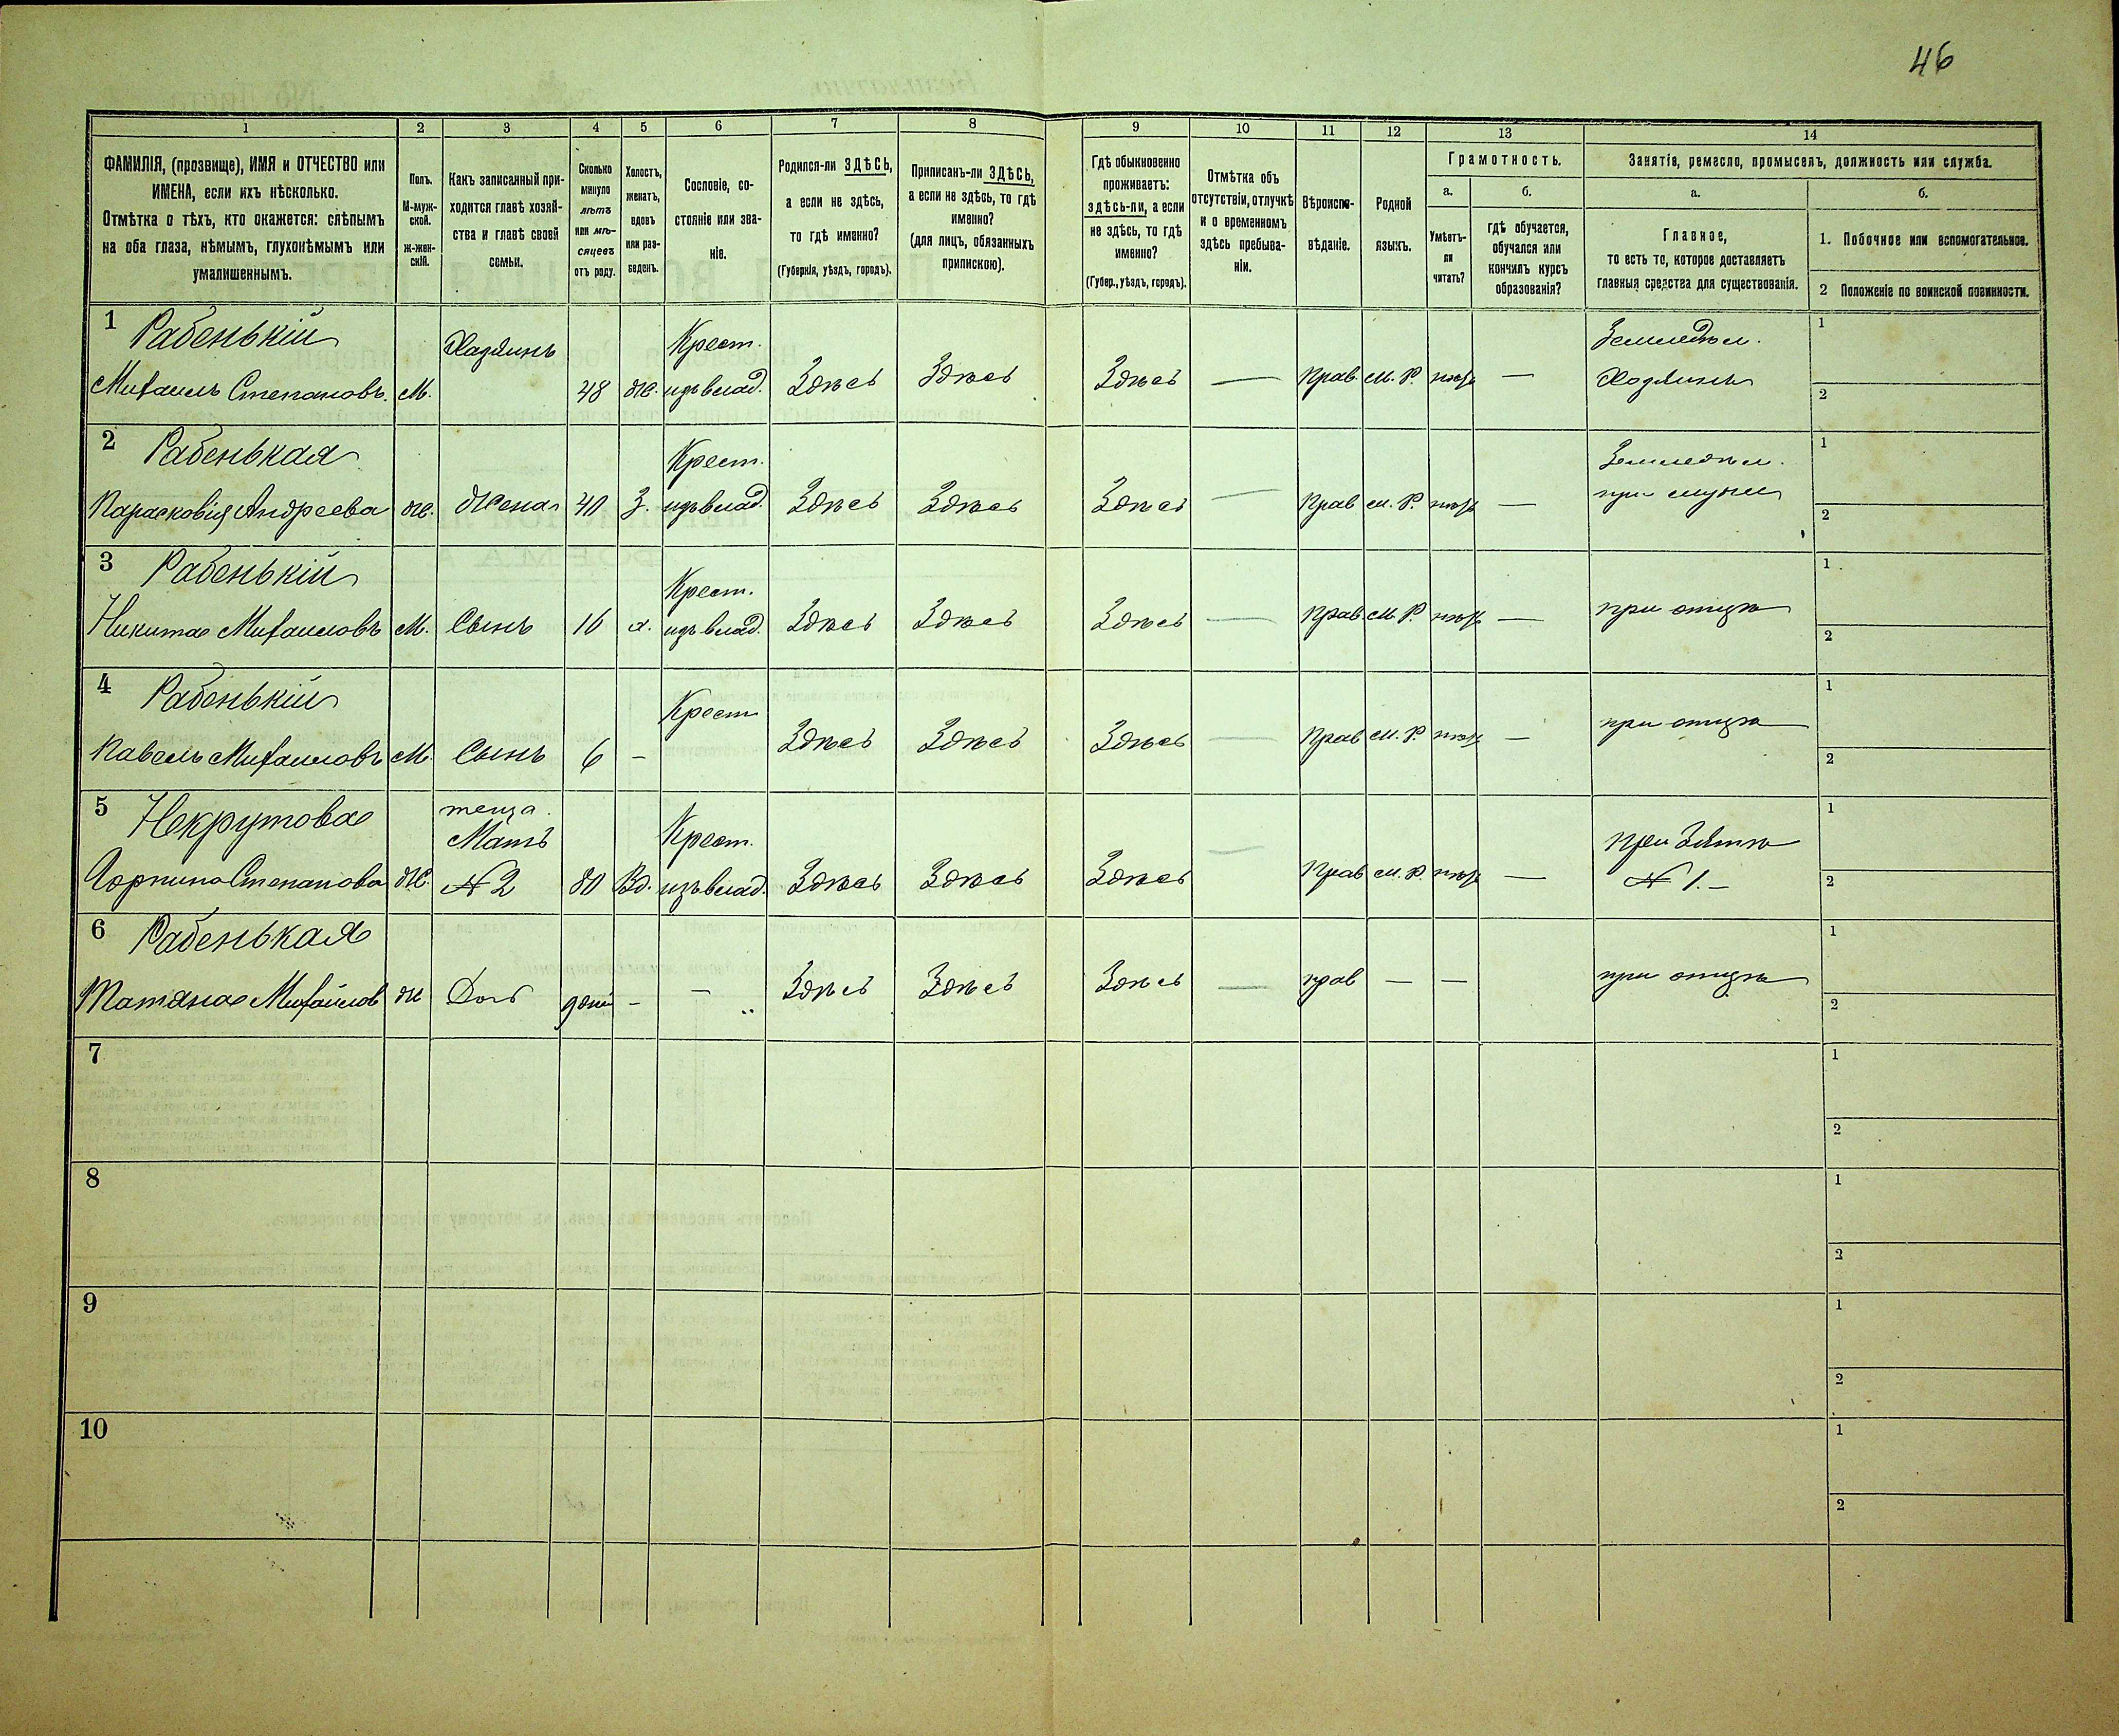 46
1 2 3 4 5 6 7 8 9 10 11 12 13 14
ФАМИЛІЯ, (прозвище), ИМЯ и ОТЧЕСТВО или
ИМЕНА, если ихъ нѣсколько.
Отмѣтка о тѣхъ, кто окажется: слѣпымъ
на оба глаза, нѣмымъ, глухонѣмымъ или
умалишеннымъ.
Полъ.
М-муж-
ской.
ж-жен-
скій.
Какъ записанный при-
ходится главѣ хозяй-
ства и главѣ своей
семьи.
Сколько
минуло
лѣтъ
или мѣ-
сяцевъ
отъ роду.
Холостъ,
женатъ,
вдовъ
или раз-
веденъ.
Сословіе, со-
стояніе или зва-
ніе.
Родился-ли ЗДѢСЬ,
а если не здѣсь,
то гдѣ именно?
(Губернія, уѣздъ, городъ).
Приписанъ-ли ЗДѢСЬ,
а если не здѣсь, то гдѣ
именно?
(для лицъ, обязанныхъ
припискою).
Гдѣ обыкновенно
проживаетъ:
здѣсь-ли, а если
не здѣсь, то гдѣ
именно?
(Губер., уѣздъ, городъ).
Отмѣтка объ
отсутствіи, отлучкѣ
и о временномъ
здѣсь пребыва-
ніи.
Вѣроиспо-
вѣданіе.
Родной
языкъ.
Грамотность.
а.
Умѣетъ-
ли
читать?
б.
гдѣ обучается,
обучался или
кончилъ курсъ
образованія?
Занятіе, ремесло, промыселъ, должность или служба.
а.
Главное,
то есть то, которое доставляетъ
главныя средства для существованія.
б.
1. Побочное или вспомогательное.
2 Положеніе по воинской повинности.
1 Рабенькій
Хазяинъ
Крест.
Земледѣл.
1
Михаилъ Степановъ. М. 48 ж. изъ влад. Здѣсь Здѣсь Здѣсь — Прав. М. Р. нѣтъ — Хозяинъ
2
2 Рабенькая
Крест.
Земледѣл.
1
Парасковія Андреева ж. Жена 40 З. изъ влад. Здѣсь Здѣсь Здѣсь — Прав М. Р. нѣтъ — при мужи
2
3 Рабенькій
Крест.
1
Никита Михаиловъ М. Сынъ 16 х. изъ влад. Здѣсь Здѣсь Здѣсь — Прав. М. Р. нѣтъ — при отцѣ
2
4 Рабенькій
Крест
1
Павелъ Михаиловъ М. Сынъ 6 - Здѣсь Здѣсь Здѣсь — Прав М. Р. нѣтъ — при отцѣ
2
5 Некрутова
теща.
Мать
Крест.
при Зятѣ
1
Горпина Степанова Ж. № 2 80 Вд. изъ влад. Здѣсь Здѣсь Здѣсь — Прав М. Р. нѣтъ — № 1. -
2
6 Рабенькая
1
Татяна Михайлов ж Дочь 9 дній - — Здѣсь Здѣсь Здѣсь — прав — — при отцѣ
2
7
1
2
8
1
2
9
1
2
10
1
2